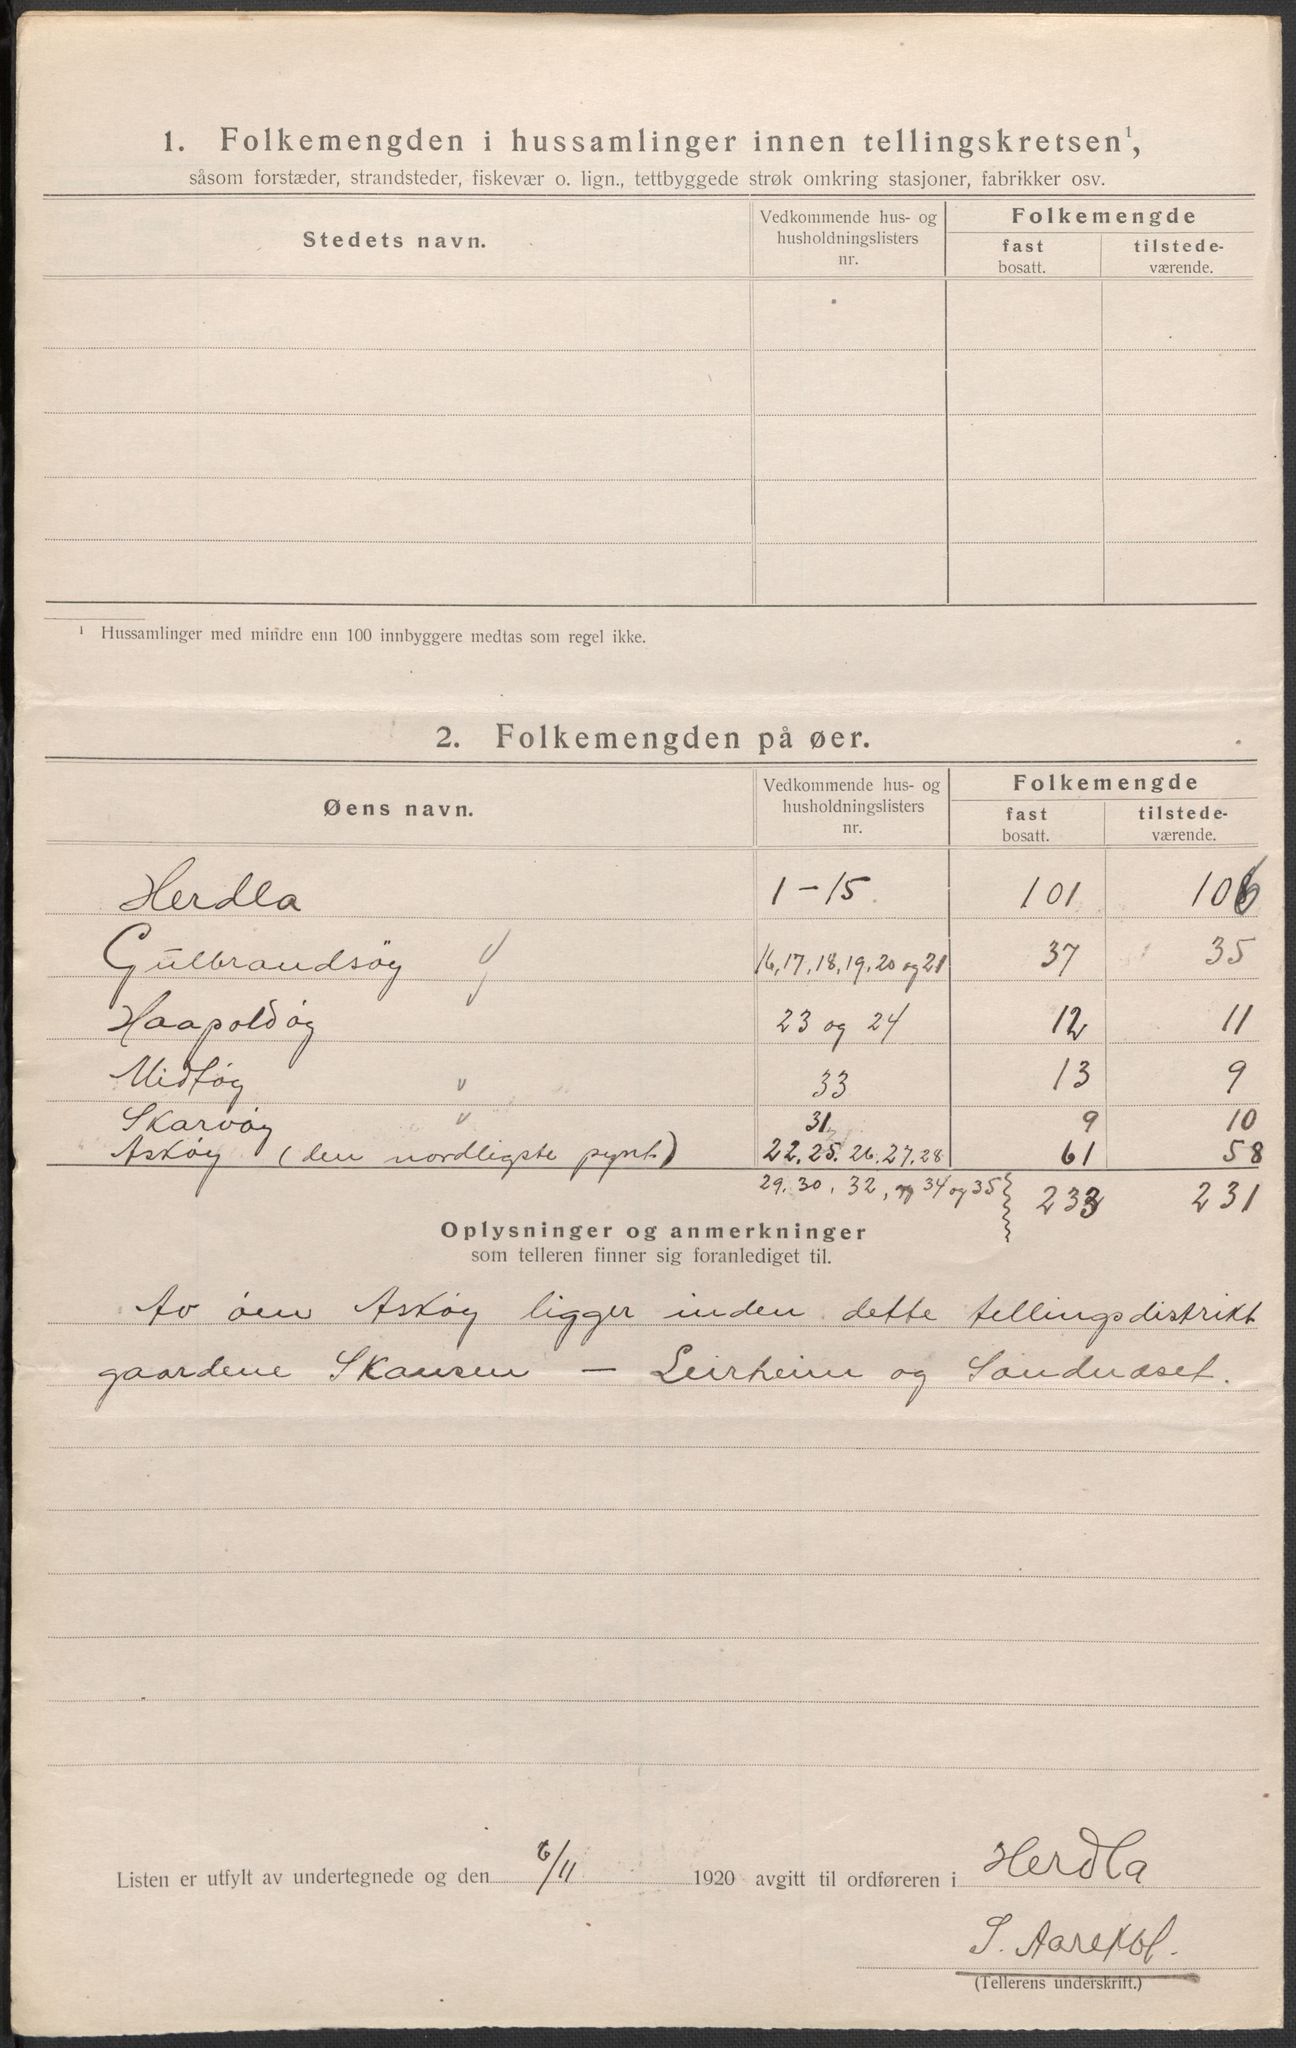 1. Folkemengden i hussamlinger innen tellingskretsen¹,
såsom forstæder, strandsteder, fiskevær o. lign., tettbyggede strøk omkring stasjoner, fabrikker osv.
Stedets navn.
Vedkommende hus- og
husholdningslisters
nr.
Folkemengde
fast
bosatt.
tilstede-
værende.
¹ Hussamlinger med mindre enn 100 innbyggere medtas som regel ikke.
2. Folkemengden på øer.
Øens navn.
Vedkommende hus- og
husholdningslisters
nr.
Folkemengde
fast
bosatt.
tilstede-
værende.
Herdla 1 – 15 101 108
Gulbrandsöy 16, 17, 18, 19, 20 og 21 37 35
Haapoldöy 23 og 24 12 11
Midtöy 33 13 9
Skarvöy 31 9 10
Asköy (den nordligste pynt) 22. 25. 26. 27. 28 61 58
29. 30. 32, og 34 og 35 233 231
Oplysninger og anmerkninger
som telleren finner sig foranlediget til.
Av öen Asköy ligger inden dette tellingsdistrikt
gaardene Skansen — Leirheim og Sandnæset.
Listen er utfylt av undertegnede og den 6/11 1920 avgitt til ordføreren i Herdla
S.
(Tellerens underskrift.)